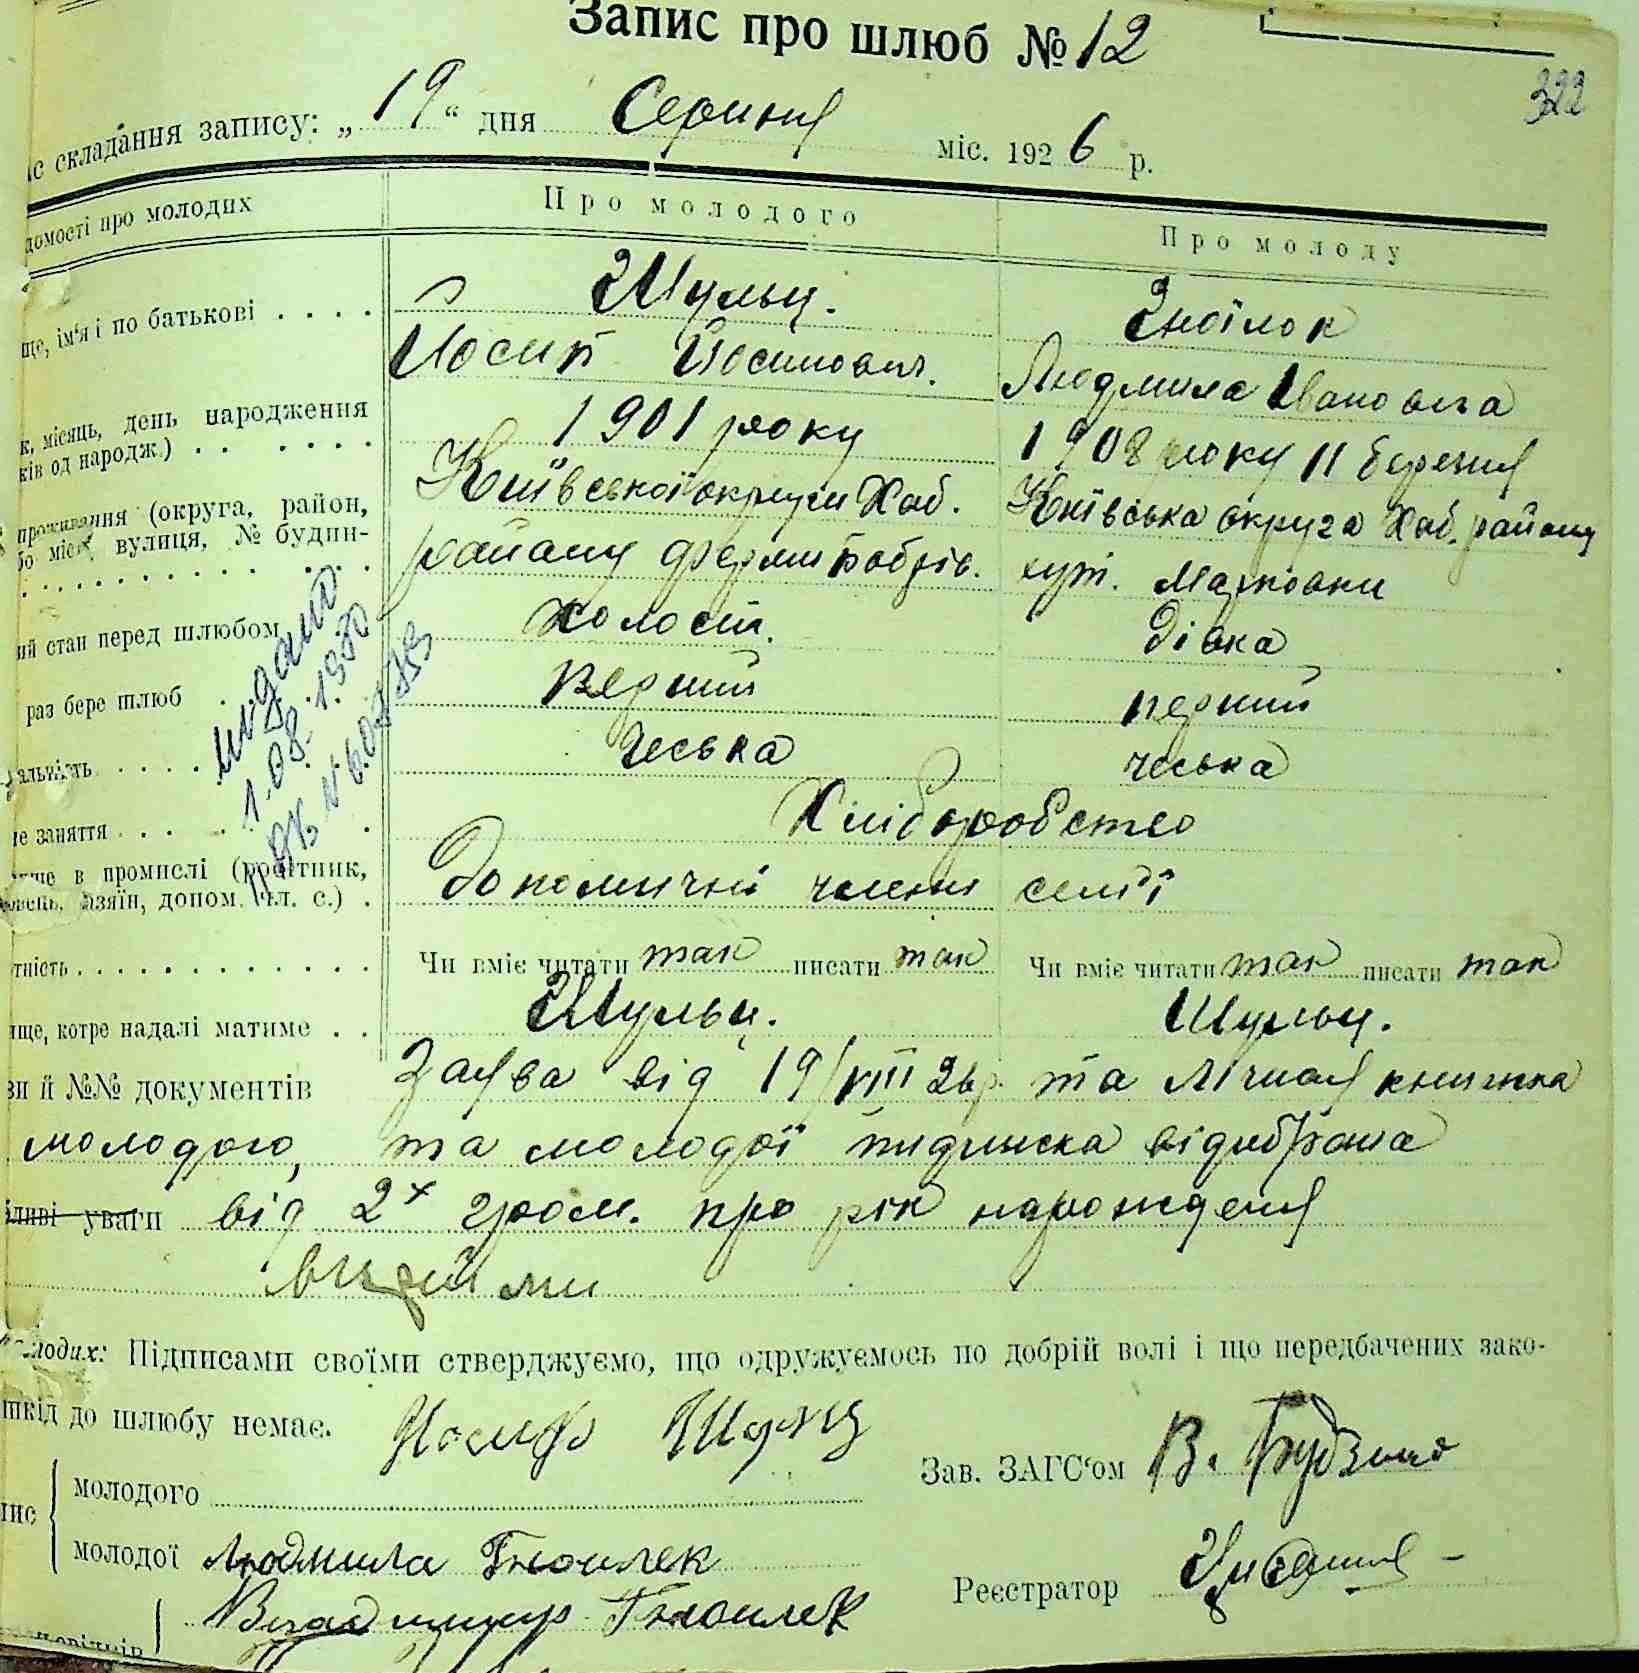 Запис про шлюб № 12
322
ас складання запису: „ 19 “ дня Серпня міс. 1926 р.
домості про молодих Про молодого Про молоду
ще, ім'я і по батькові . . . . Шульц. Гноїлек
Йосип Йосипович. Людмила Івановна
к, місяць, день народження 1901 року 1908 року 11 березня
ків од народж.) . . . . . .
проживання (округа, район, Київської округи Хаб. Київська округа Хаб. району
бо місто вулиця, № будин- району ферми Бобрів. хут. Марковки
ий стан перед шлюбом холост. дівка
раз бере шлюб перший перший
альність . . . . чеська чеська
не заняття . . . Хліборобство
в промислі (робітник, Допомічні члени сем'ї
хазяїн, допом. чл. с.) .
тність . . . . . . . . . . . . . Чи вміє читати так писати так Чи вміє читати так писати так
ище, котре надалі матиме . . Шульц. Шульц.
видано
1.08.1950
зви й №№ документів Заява від 19/VIII 26 р. та Лічная книжка
молодого, та молодої підписка відибрана
бливі уваги від 2х гром. про рік народженя
молодих: Підписами своїми стверджуємо, що одружуємось по добрій волі і що передбачених зако-
шкід до шлюбу немає. Иосиф Шульц
Зав. ЗАГС‘ом В.
пис молодого
молодої Людмила Гноилек
Реєстратор
Владимир Гноилек